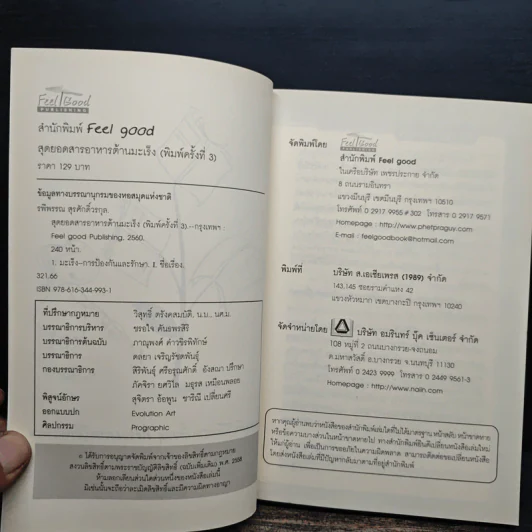 Feel Good
PUBLISHING
สำนักพิมพ์ Feel good
สุดยอดสารอาหารต้านมะเร็ง (พิมพ์ครั้งที่ 3)
ราคา 129 บาท
ข้อมูลทางบรรณานุกรมของหอสมุดแห่งชาติ
รพีพรรณ สุรศักดิ์วรกุล.
สุดยอดสารอาหารต้านมะเร็ง (พิมพ์ครั้งที่ 3).--กรุงเทพฯ :
Feel good Publishing, 2560.
240 หน้า.
1. มะเร็ง--การป้องกันและรักษา. I. ชื่อเรื่อง.
321.66
ISBN 978-616-344-993-1
ที่ปรึกษากฎหมาย วิสุทธิ์ ตรังคสมบัติ. น.บ., นศ.ม.
บรรณาธิการบริหาร ขรอใจ คันธพรสิริ
บรรณาธิการต้นฉบับ ภาณุพงศ์ คำวชิรพิทักษ์
บรรณาธิการ ดลยา เจริญรัชตพันธุ์
กองบรรณาธิการ สิริพันธุ์ ศรีอรุณศักดิ์ อังสณา ปรึกษา
ภัคจิรา ยศวิไล มธุรส เหมือนพลอย
พิสูจน์อักษร สุจิตรา อ้อพูน ชาริณี เปลี่ยนศรี
ออกแบบปก Evolution Art
ศิลปกรรม Prographic
๐ ได้รับการอนุญาตจัดพิมพ์จากเจ้าของลิขสิทธิ์ตามกฎหมาย
สงวนลิขสิทธิ์ตามพระราชบัญญัติลิขสิทธิ์ (ฉบับเพิ่มเติม) พ.ศ. 2558
ห้ามลอกเลียนส่วนใดส่วนหนึ่งของหนังสือเล่มนี้
มิเช่นนั้นจะถือว่าละเมิดลิขสิทธิ์และมีความผิดทางอาญา
จัดพิมพ์โดย Feel Good
PUBLISHING
สำนักพิมพ์ Feel good
ในเครือบริษัท เพชรประกาย จำกัด
8 ถนนรามอินทรา
แขวงมีนบุรี เขตมีนบุรี กรุงเทพฯ 10510
โทรศัพท์ 0 2917 9955 # 302 โทรสาร 0 2917 9571
Homepage : http://www.phetpraguy.com
E-mail : feelgoodbook@hotmail.com
พิมพ์ที่ บริษัท ส.เอเซียเพรส (1989) จำกัด
143,145 ซอยรามคำแหง 42
แขวงหัวหมาก เขตบางกะปิ กรุงเทพฯ 10240
จัดจำหน่ายโดย บริษัท อมรินทร์ บุ๊ค เซ็นเตอร์ จำกัด
108 หมู่ที่ 2 ถนนบางกรวย-จงถนอม
ต.มหาสวัสดิ์ อ.บางกรวย จ.นนทบุรี 11130
โทรศัพท์ 0 2423 9999 โทรสาร 0 2449 9561-3
Homepage : http://www.naiin.com
หากคุณผู้อ่านพบว่าหนังสือของสำนักพิมพ์เล่มใดที่ไม่ได้มาตรฐาน หน้าสลับ หน้าขาดหาย
หรือข้อความบางส่วนในหน้าขาดหายไป ทางสำนักพิมพ์ยินดีเปลี่ยนหนังสือเล่มใหม่
ให้แก่ผู้อ่าน เพื่อเป็นการขออภัยในความผิดพลาด สามารถติดต่อขอเปลี่ยนหนังสือ
โดยส่งหนังสือเล่มที่มีปัญหากลับมาตามที่อยู่สำนักพิมพ์